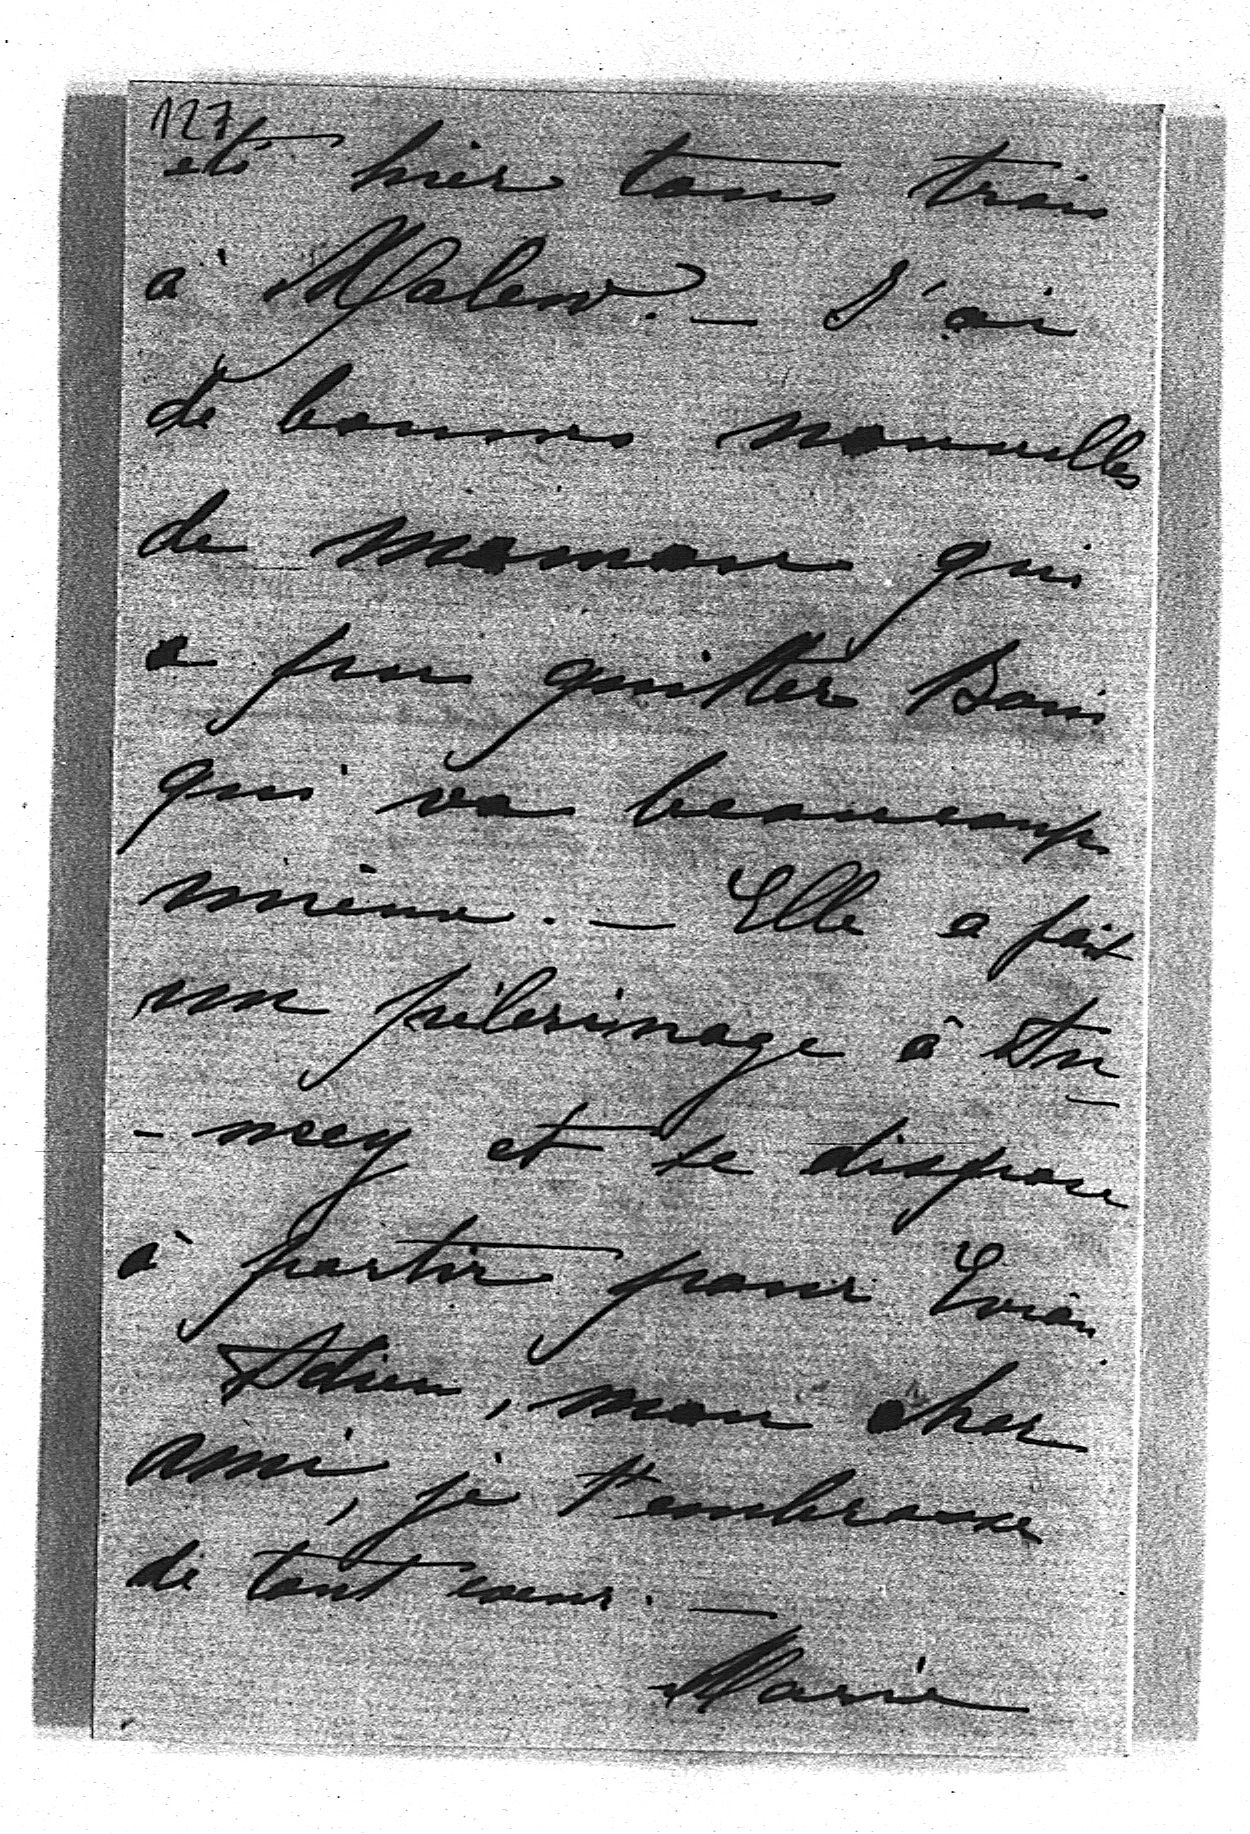 127
été hier tous trois
à Malew. — J'ai
de bonnes nouvelles
de maman qui
a pu quitter Bois
qui va beaucoup
mieux. — Elle a fait
un pèlerinage à An-
-necy et se dispose
à partir pour Evian
Adieu, mon cher
ami, je t'embrasse
de tout cœur. —
Marie